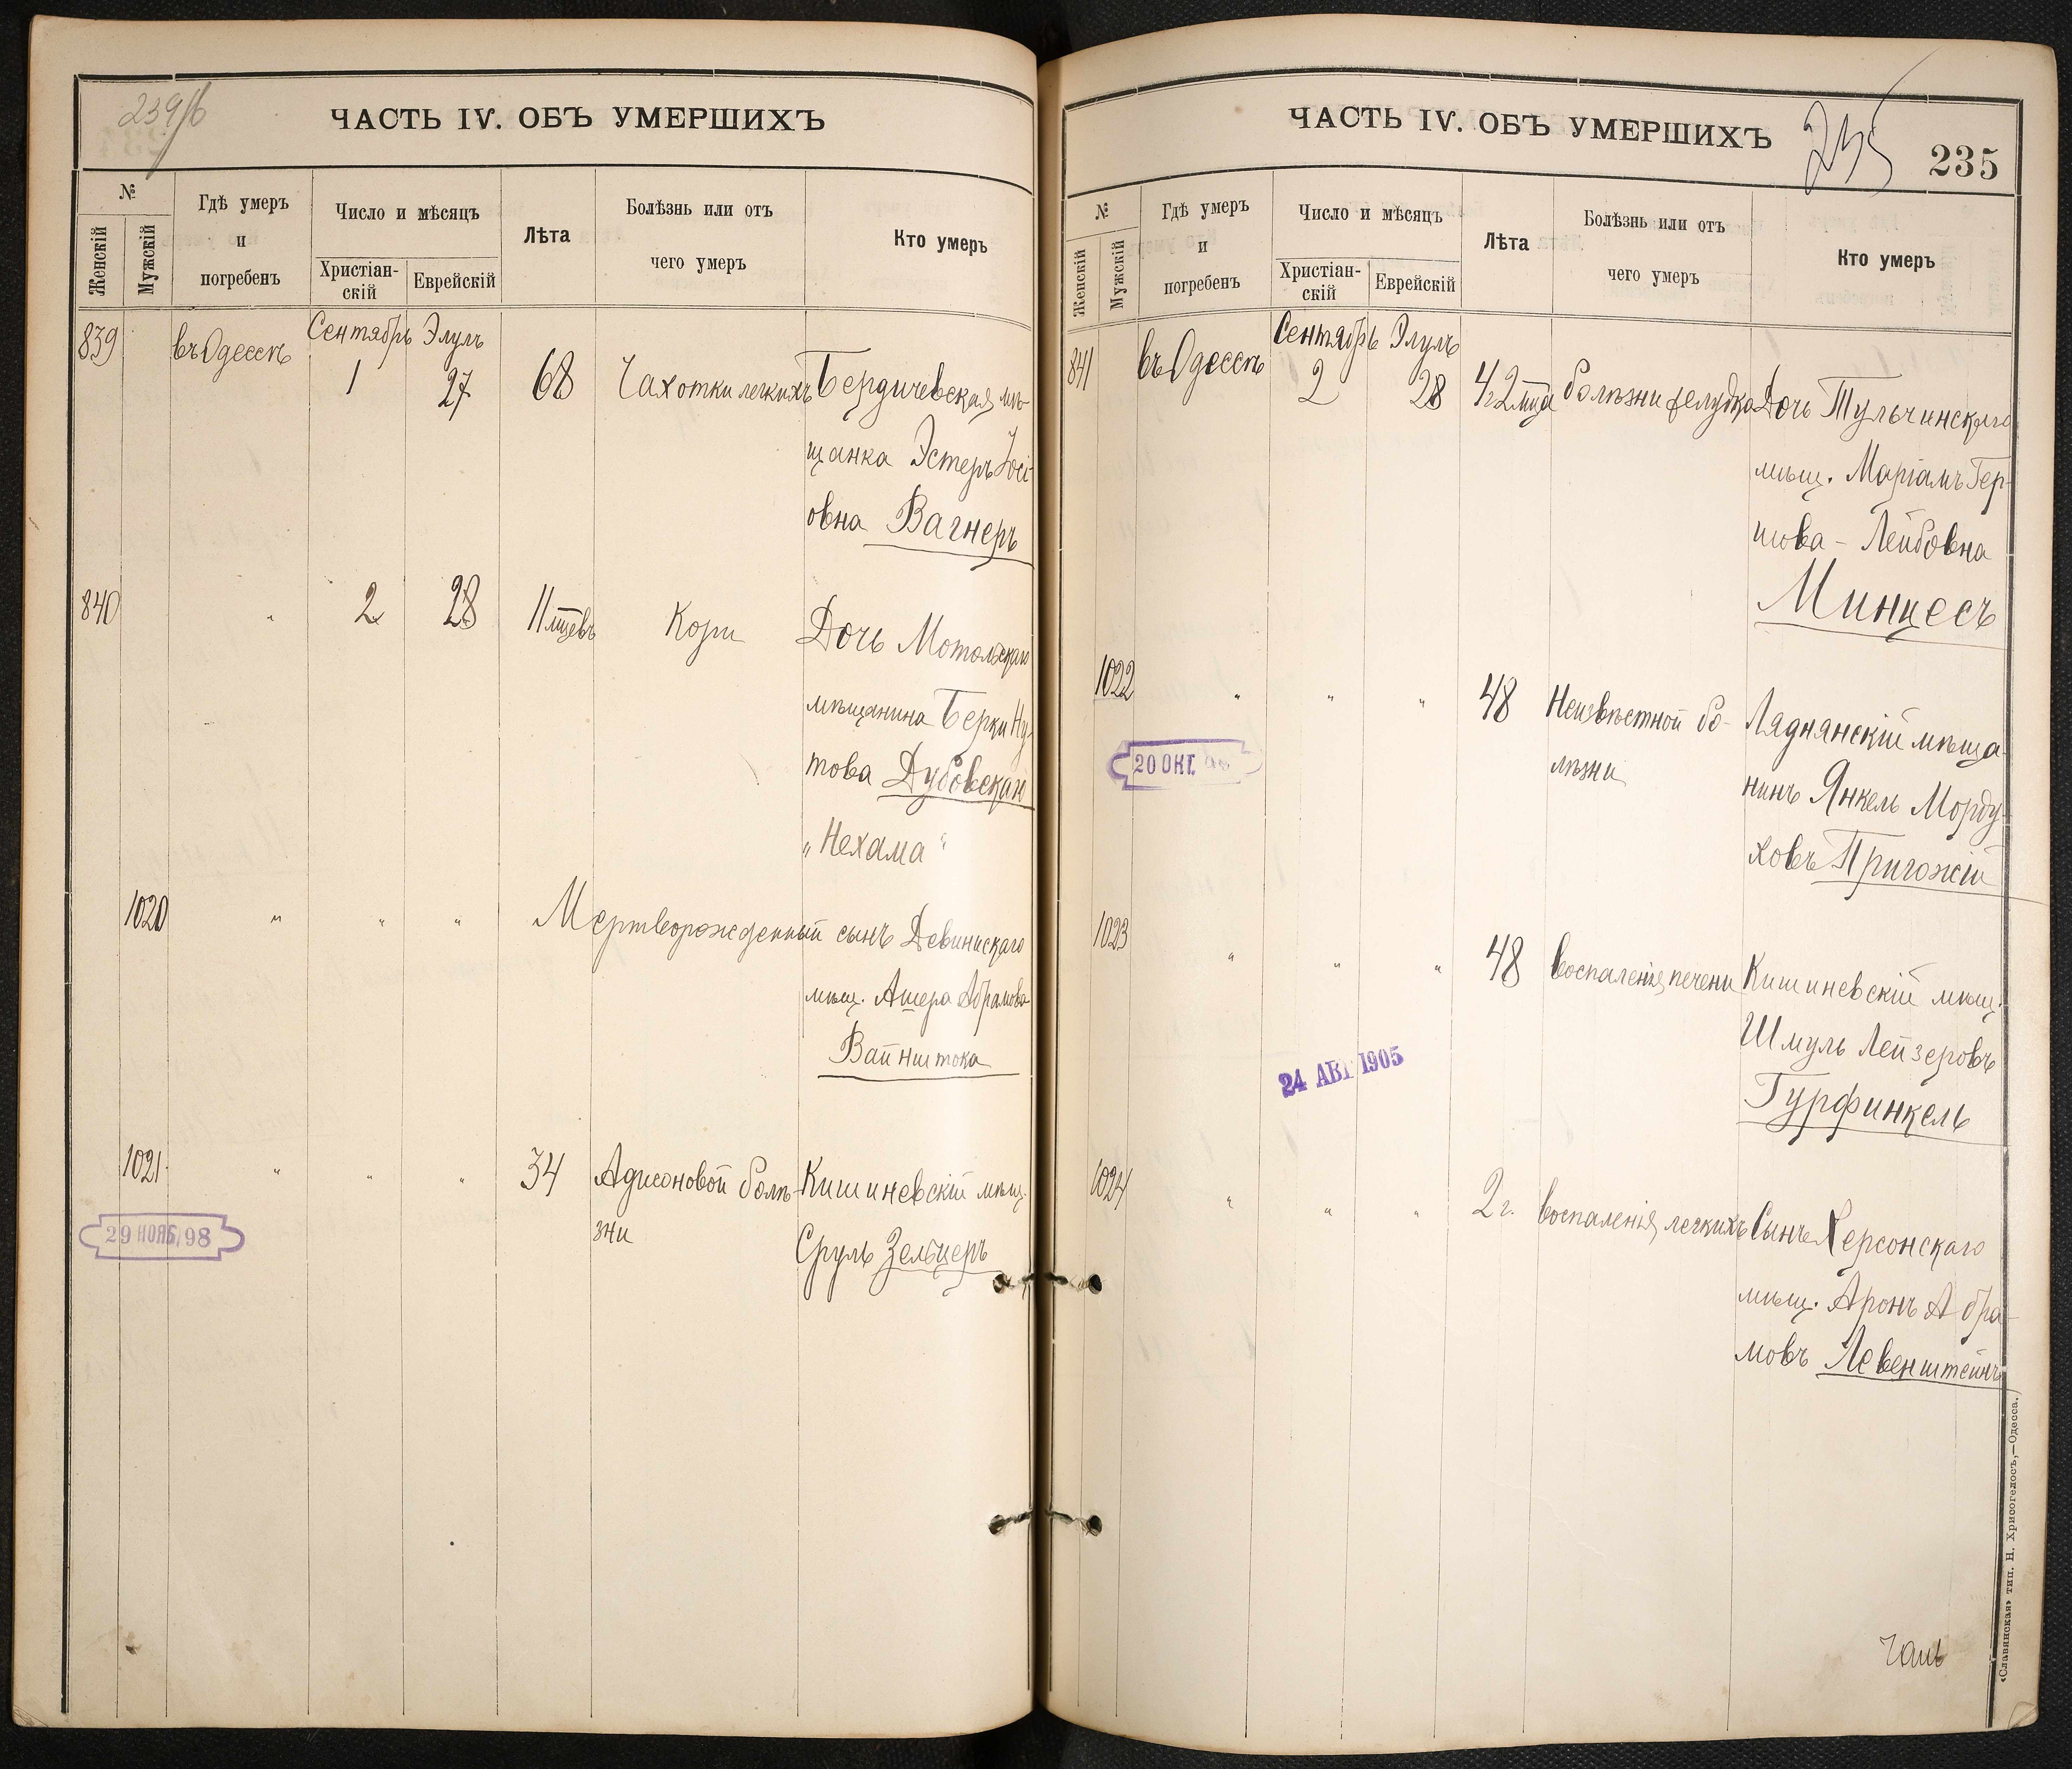 239/б
ЧАСТЬ IV. ОБЪ УМЕРШИХЪ
№
Женскій
Мужскій
Гдѣ умеръ
и
погребенъ
Число и мѣсяцъ
Христіан-
скій
Еврейскій
Лѣта
Болѣзнь или отъ
чего умеръ
Кто умеръ
839 въ Одессѣ Сентябрь 1 Элулъ 27 68 Чахотки легкихъ Бердичевская мѣ-
щанка Эстеръ Іосі-
овна Вагнеръ
840 " 2 28 11 мцевъ Кори Дочь Мотольскаго
мѣщанина Берки Ну-
това Дубовскаго
„Нехама“
1020 " " " Мертворожденный сынъ Девинискаго
мѣщ. Ашера Абрамова
Вайнштока
1021 " " " 34 Адисоновой болѣ- Кишиневскій мѣщ.
зни Сруль Зельцеръ
29 НОЯБ. 98
ЧАСТЬ IV. ОБЪ УМЕРШИХЪ
235
235
№
Женскій
Мужскій
Гдѣ умеръ
и
погребенъ
Число и мѣсяцъ
Христіан-
скій
Еврейскій
Лѣта
Болѣзнь или отъ
чего умеръ
Кто умеръ
841 въ Одессѣ Сентябрь 2 Элулъ 28 мца болѣзни желудка Дочь Тульчинскаго
мѣщ. Маріамъ Гер-
шова - Лейбовна
Минцесъ
1022 " " " 48 Неизвѣстной бо- Ляднянскій мѣща-
лѣзни нинъ Янкель Морду-
ховъ Пригожій
20 ОКТ.
1023 " " " 48 воспаленія печени Кишиневскій мѣщ.
Шмуль Лейзеровъ
Гурфинкель
24 АВГ 1905
1024 " " " 2 г. воспаленія легкихъ Сынъ Херсонскаго
мѣщ. Аронъ Абра-
мовъ Левенштейнъ
«Славянская» тип. Н. Хрисогелосъ,—Одесса.